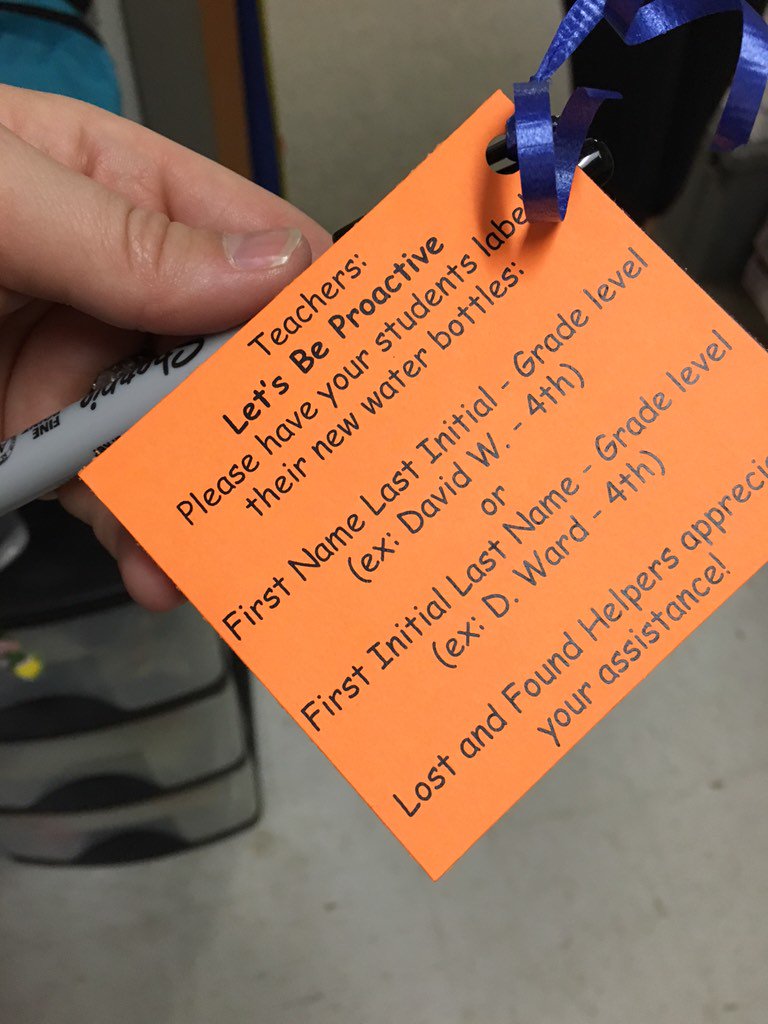 Teachers:
Let's Be Proactive
Please have your students label
their new water bottles:
First Name Last Initial - Grade level
(ex: David W. - 4th)
or
First Initial Last Name - Grade level
(ex: D. Ward - 4th)
Lost and Found Helpers apprecia
your assistance!
Sharpie
FINE